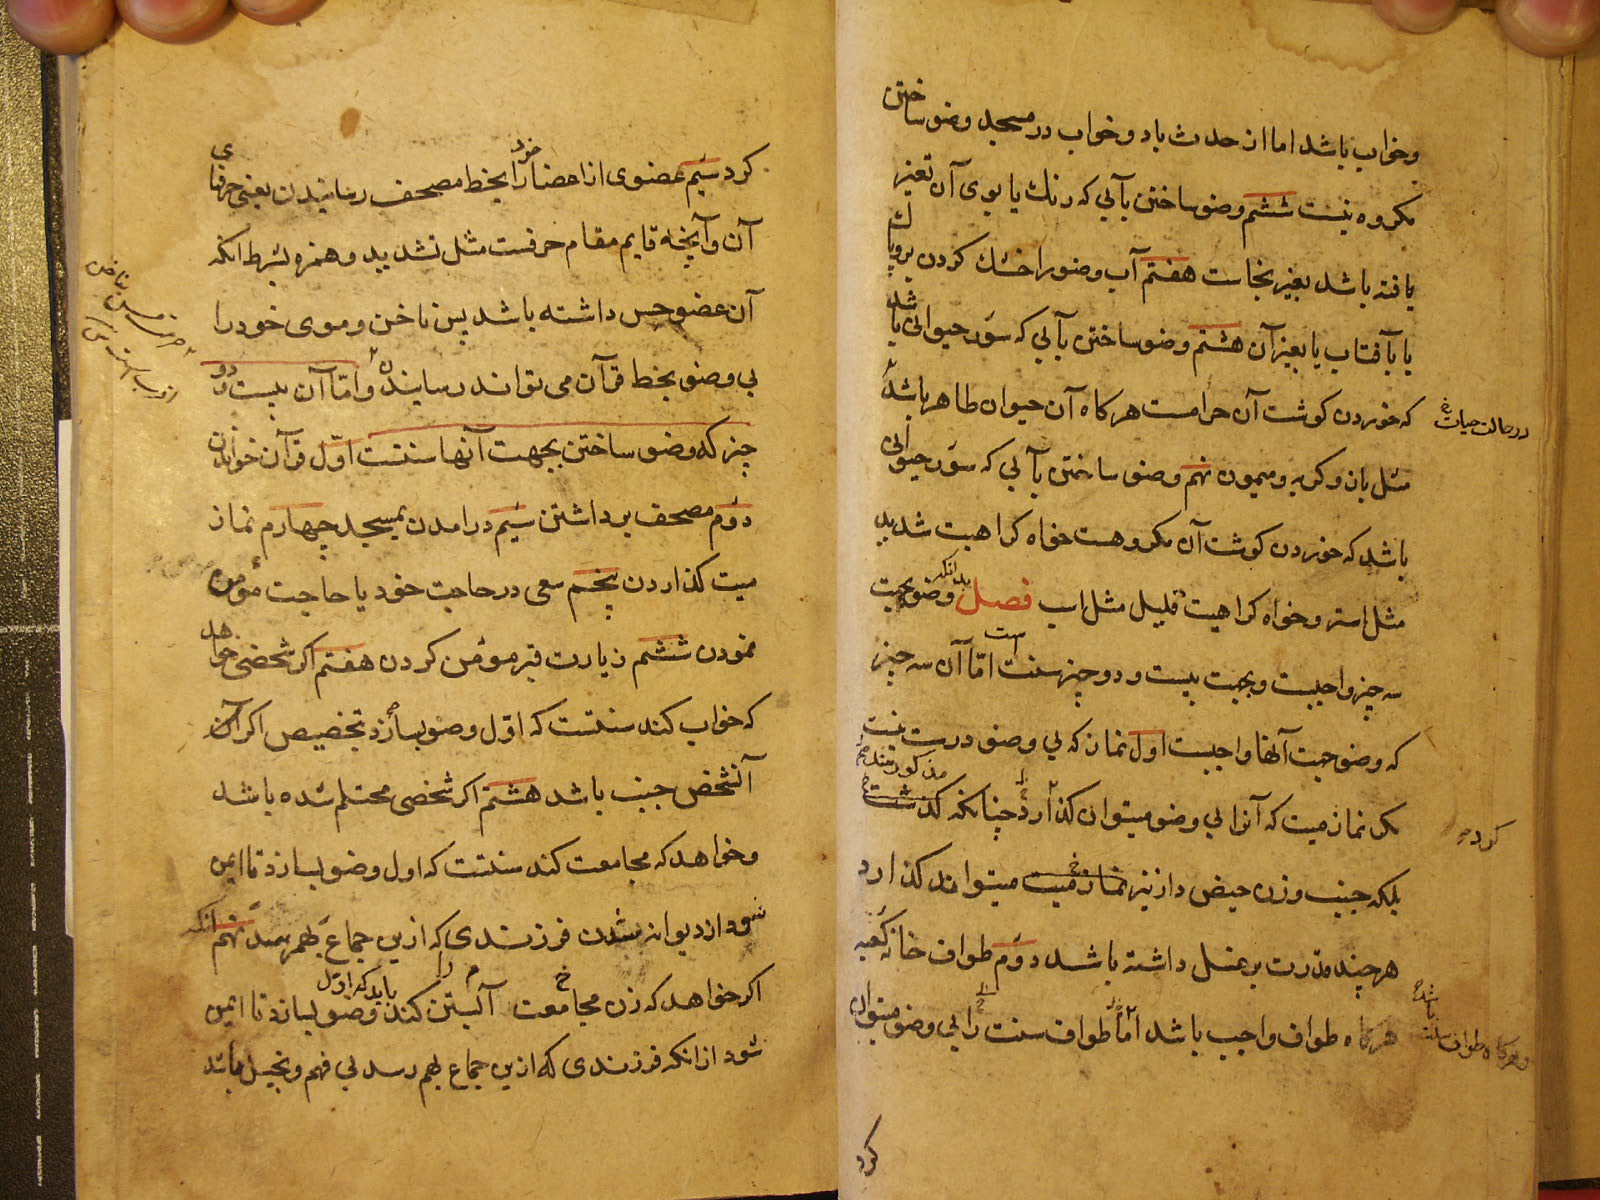 و خواب باشد اما از حدث باد و خواب در مسجد وضو ساختن
مکروه نیست ششم وضو ساختن بآبی که رنك یا بوی آن تغیر
یافته باشد بغیر نجاست هفتم آب وضو را خشك کردن
یا بآفتاب یا بغیر آن هشتم وضو ساختن بآبی که سؤر حیوانی باشد
که خوردن کوشت آن حرامست هرکاه آن حیوان طاهر باشد
در حالت حیات
مثل باز و کربه و میمون نهم وضو ساختن بآبی که سؤر حیوانی
باشد که خوردن کوشت آن مکروهست خواه کراهیت شدید
مثل استر و خواه کراهیت قلیل مثل اسب فصل بدانکه وضو بجهت
سه چیز واجبست و بجهت بیست و دو چیز سنت است امّا آن سه چیز
که وضو جهت آنها واجبست اول نماز که بی وضو درست نیست
مکر نماز میت که آنرا بی وضو میتوان کذارد چنانکه کذشت
مذکور شد
کرد
بلکه جنب و زن حیض دار نیز نماز میت میتواند کذارد
هرچند قدرت بر غسل داشته باشد دوّم طواف خانه کعبه
هرکاه طواف واجب باشد امّا طواف سنت را بی وضو میتوان
و هرکاه طواف سنت باشد
کرد
کرد سیّم عضوی از اعضا خود را بخط مصحف رسانیدن یعنی حرفهای
آن و آنچه قایم مقام حرفست مثل تشدید و همزه بشرط انکه
آن عضو حس داشته باشد پس ناخن و موی خود را
بی وضو بخط قرآن می تواند رسانید و امّا آن بیست و دو
چیز که وضو ساختن بجهت آنها سنتست اوّل قرآن خواندن
دوّم مصحف برداشتن سیّم درامدن بمسجد چهارم نماز
میت کذاردن پنجم سعی در حاجت خود یا حاجت مؤمن
نمودن ششم زیارت قبر مؤمن کردن هفتم اکر شخصی خواهد
که خواب کند سنتست که اوّل وضو بسازد بتخصیص اکر
آنشخص جنب باشد هشتم اکر شخصی محتلم شده باشد
و خواهد که مجامعت کند سنتست که اول وضو بسازد تا ایمن
شود از دیوانه شدن فرزندی که ازین جماع بهم رسد نهم انکه
اکر خواهد که زن مجامعت آبستن کند باید که اوّل وضو بسازد تا ایمن
شود از انکه فرزندی که ازین جماع بهم رسد بی فهم و بخیل باشد